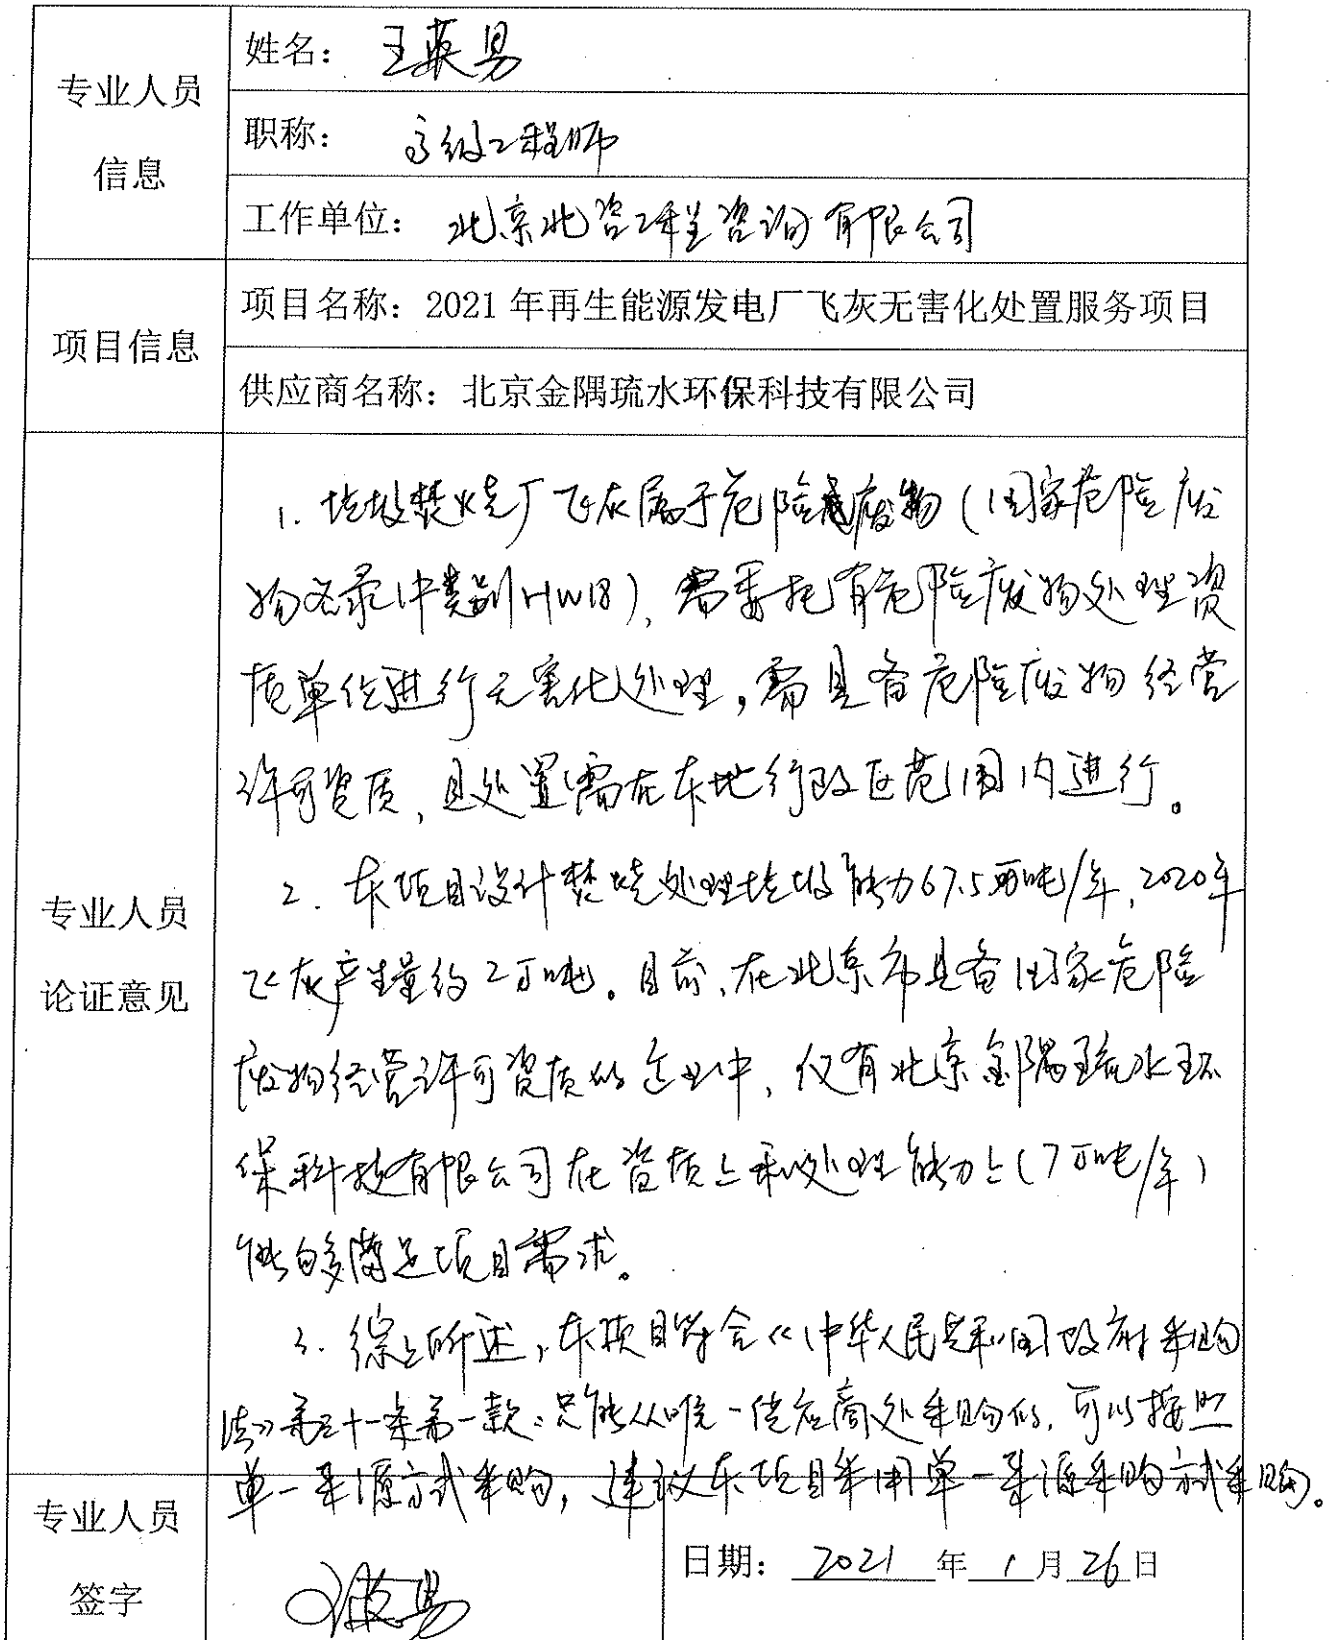 专业人员
信息
姓名：王英男
职称：高级工程师
工作单位：北京北咨工程咨询有限公司
项目信息
项目名称：2021年再生能源发电厂飞灰无害化处置服务项目
供应商名称：北京金隅琉水环保科技有限公司
专业人员
论证意见
1. 垃圾焚烧厂飞灰属于危险废物（国家危险废
物名录中类别HW18），需委托有危险废物处理资
质单位进行无害化处理，需具备危险废物经营
许可资质，且处置需在本地行政区范围内进行。
2. 本项目设计焚烧处理垃圾能力67.5万吨/年，2020年
飞灰产生量约2万吨。目前，在北京市具备国家危险
废物经营许可资质的企业中，仅有北京金隅琉水环
保科技有限公司在资质上和处理能力上（7万吨/年）
能够满足项目需求。
3. 综上所述，本项目符合《中华人民共和国政府采购
法》第三十一条第一款：只能从唯一供应商处采购的，可以按照
单一来源方式采购，建议本项目采用单一来源采购方式采购。
专业人员
签字
日期：2021年1月26日